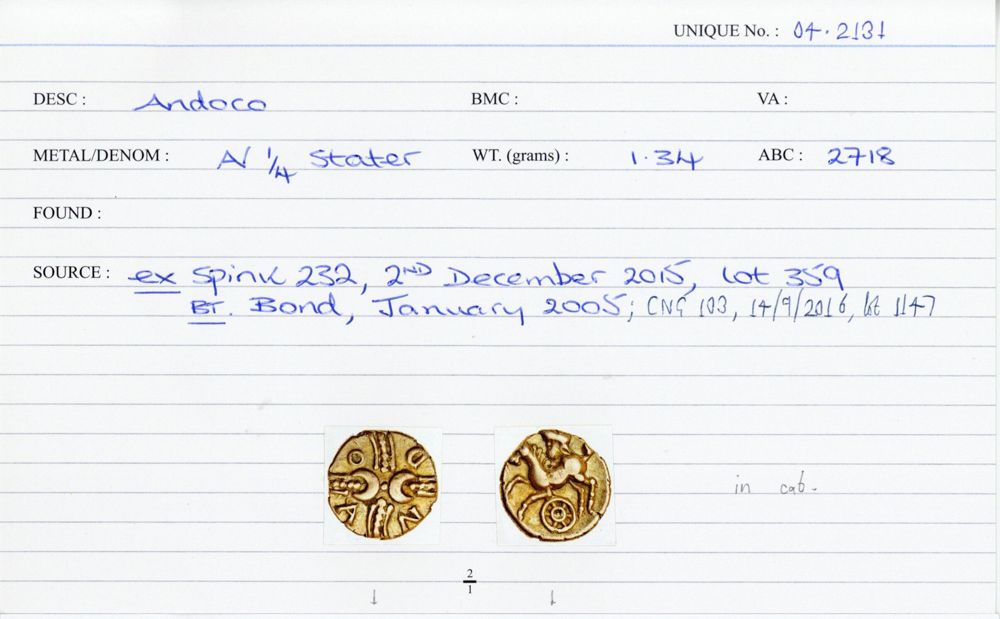 UNIQUE No. : 04.2131
DESC : Andoco BMC : VA :
METAL/DENOM : AV 1/4 Stater WT. (grams) : 1.34 ABC : 2718
FOUND :
SOURCE : ex Spink 232, 2ND December 2015, Lot 359
BT. Bond, January 2005; CNG 103, 14/9/2016, lot 1147
O D
A N
in cab.
2/1